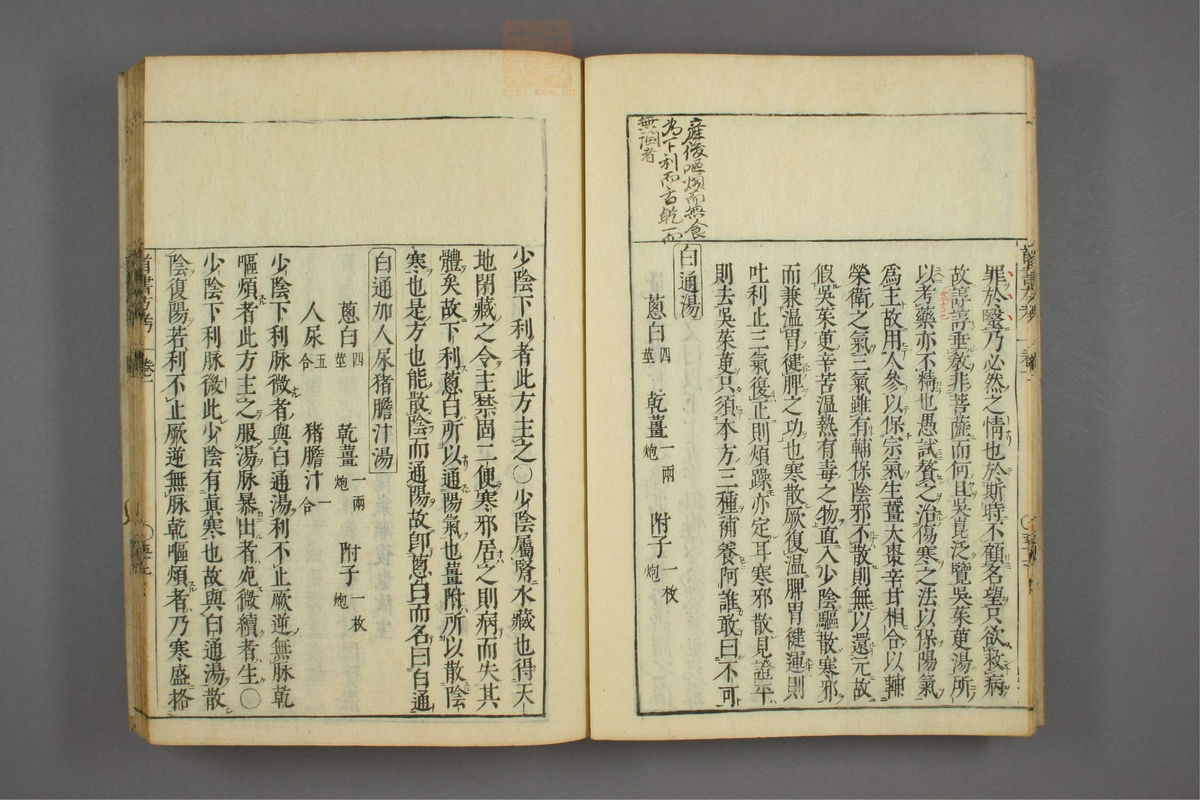 罪於醫乃必然之情也於斯時不顧名望只欲救病
故諄諄垂教非菩薩而何且吳崑泛覽吳茱萸湯所
以考藥亦不精也愚試贅之治傷寒之法以保陽氣
爲主故用人參以保宗氣生薑大棗辛甘相合以輔
榮衛之氣三氣雖有輔保陰邪不散則無以還元故
假吳茱萸辛苦温熱有毒之物直入少陰驅散寒邪
而兼温胃健脾之功也寒散厥復温脾胃健運則
吐利止三氣復正則煩躁亦定耳寒邪散見證平
則去吳茱萸只須本方三種補養阿誰敢曰不可
產後嘔煩而無食
為下利而舌乾一而
無洄者
白通湯
蔥白四莖 乾薑一兩炮 附子一枚炮
少陰下利者此方主之○少陰屬腎水藏也得天
地閉藏之令主禁固二便寒邪居之則病而失其
體矣故下利蔥白所以通陽氣也薑附所以散陰
寒也是方也能散陰而通陽故卽蔥白而名曰白通
白通加人尿猪膽汁湯
蔥白四莖 乾薑一兩炮 附子一枚炮
人尿五合 猪膽汁一合
少陰下利脉微者與白通湯利不止厥逆無脉乾
嘔煩者此方主之服湯脉暴出者死微續者生○
少陰下利脉微此少陰有真寒也故與白通湯散
陰復陽若利不止厥逆無脉乾嘔煩者乃寒盛格